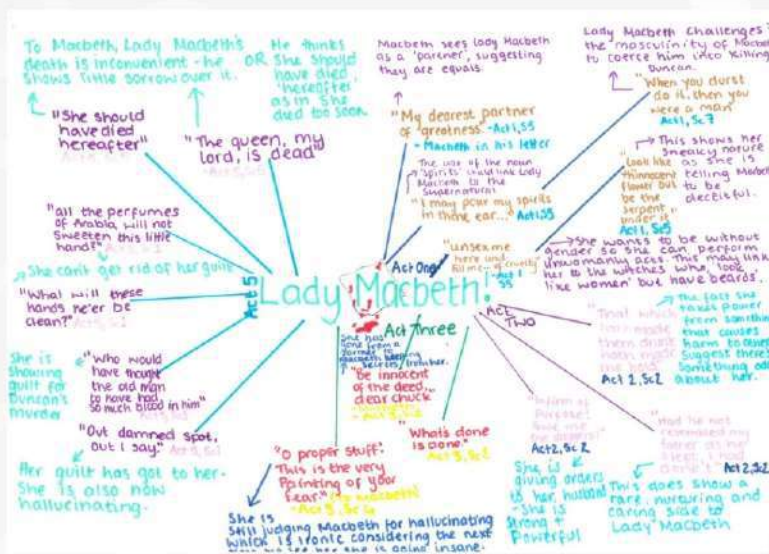 To Macbeth, Lady Macbeth's
death is inconvenient - he
shows little sorrow over it.
OR
He thinks
she should
have died
'hereafter'
as in she
died too soon
"She should
have died
hereafter"
"The queen, my
lord, is dead"
"all the perfumes
of Arabia will not
sweeten this little
hand!"
She can't get rid of her guilt
"What will these
hands ne'er be
clean?"
She is
showing
guilt for
Duncan's
murder
"Who would
have thought
the old man
to have had
so much blood in him"
"Out damned spot,
out I say."
Her guilt has got to her-
She is also now
hallucinating.
Act 5
Lady Macbeth!
Macbeth sees lady Macbeth
as a 'partner', suggesting
they are equals.
"My dearest partner
of greatness
-Act 1, S5
- Macbeth in his letter
The use of the noun
'spirits' could link Lady
Macbeth to the
supernatural
"I may pour my spirits
in thine ear..."
Act 1, S5
"unsex me
here and
fill me... of cruelty"
-Act 1
S5
Act One
Lady Macbeth Challenges
the masculinity of Macbeth
to coerce him into killing
Duncan.
"When you durst
do it, then you
were a man"
Act 1, Sc 7
This shows her
sneaky nature
as she is
telling Macbeth
to be
deceitful.
"Look like
th'innocent
flower but
be the
serpent
under it"
Act 1, Sc5
She wants to be without
gender so she can perform
unwomanly acts. This may link
her to the witches who 'look
like women' but have beards.
ACT
TWO
"That which
hath made
them drunk
hath made
me bold"
Act 2, Sc2
The fact she
takes power
from something
that causes
harm to others
suggest there's
something odd
about her.
"Infirm of
purpose!
Give me
the daggers!"
Act 2, Sc 2
She is
giving orders
to her husband
- She is
strong +
Powerful
"Had he not
resembled my
father as he
slept, I had
done't"
Act 2, Sc2
This does show a
rare, nurturing and
caring side to
Lady Macbeth
Act Three
She has
gone from a
partner to
Macbeth keeping
secrets from her.
"be innocent
of the deed,
dear chuck"
"What's done
is done."
Act 3, Sc2
"O proper stuff!
This is the very
Painting of your
fear."
(to Macbeth)
-Act 3, Sc 4
She is
Still judging Macbeth for hallucinating
which is ironic considering the next